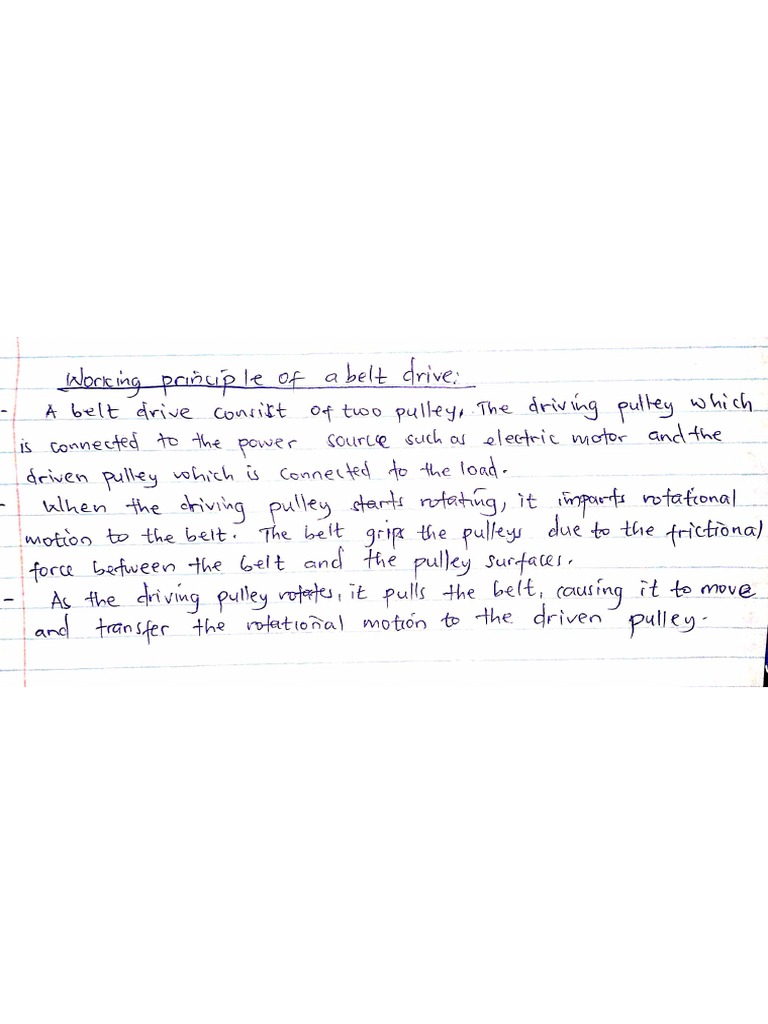 Working principle of a belt drive:
- A belt drive consist of two pulley, The driving pulley which
is connected to the power source such as electric motor and the
driven pulley which is connected to the load.
- When the driving pulley starts rotating, it imparts rotational
motion to the belt. The belt grips the pulleys due to the frictional
force between the belt and the pulley surfaces.
- As the driving pulley rotates, it pulls the belt, causing it to move
and transfer the rotational motion to the driven pulley.